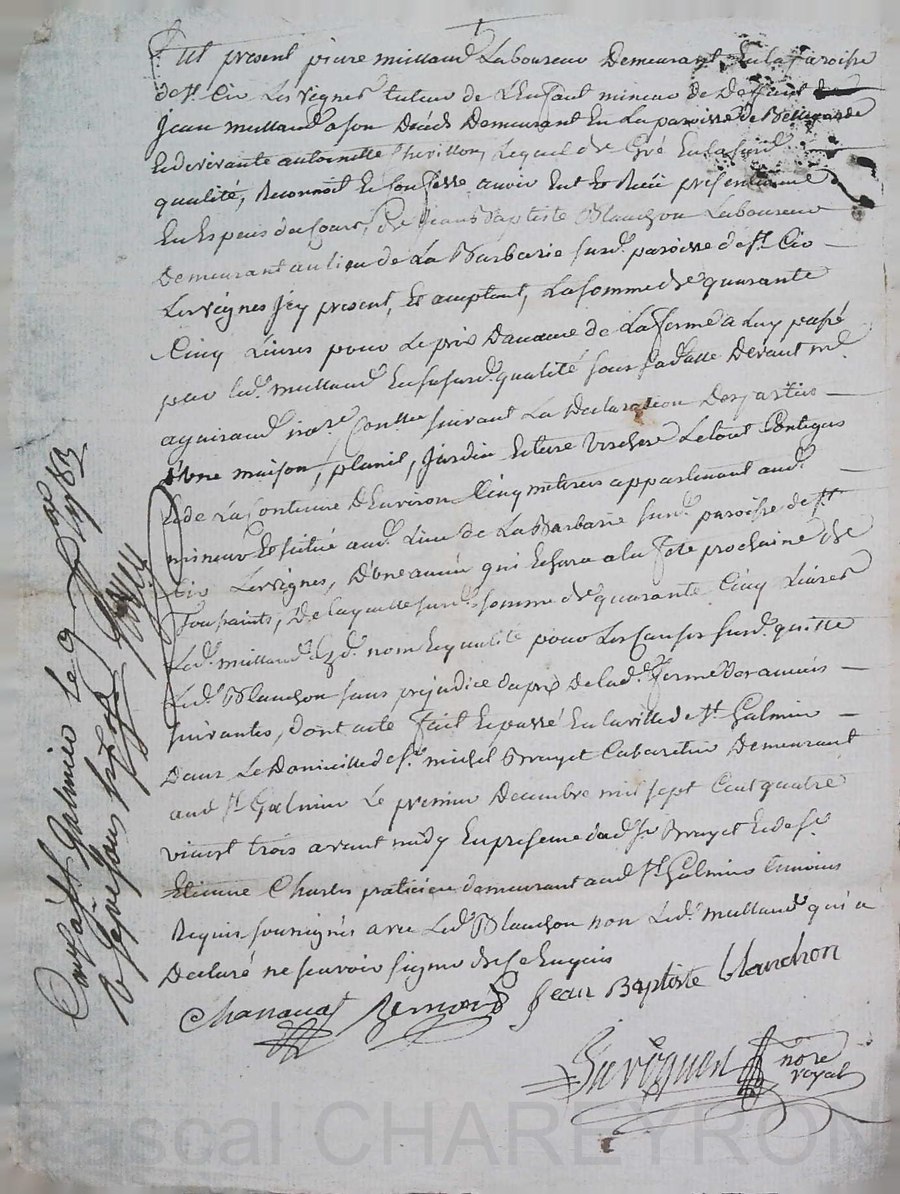 Fut present pierre millaud Laboureur Demeurant En la paroisse
de St. Cir Les vignes tuteur de L'Enfant mineur de Deffunt
Jean millaud a son Décés Demeurant En la paroisse de Bellegarde
Et de vivante antoinette thevillon, Lequel de Gré En lad.
qualité, Reconnoit Et Confesse avoir Eut Et Reçu presentement
En Especes du Cours, de Jean Baptiste Blanchon Laboureur
Demeurant au lieu de La Barbarie surd. paroisse de St. Cir
Les vignes Icy present, Et aceptant, La somme de quarante
Cinq Livres pour Le prix D'année de La ferme a Luy passé
par led. millaud En sa surd. qualité sous sa datte Devant me.
aguiraud nore. suivant La Declaration Des parties
d'une maison, planit, Jardin Et terre verchere Le tout Contigus
Et de La Contenue D'Environ Cinq meterés appartenant aud.
mineur Et situé aud. Lieu de La Barbarie surd. paroisse de St.
Cir Les vignes, D'une année qui Echera a la fete prochaine de
Toussaints, De laquelle surd. somme de quarante Cinq Livres
Led. millaud Esd. nom Et qualité pour Les Causes surd. quitte
Led. Blanchon sans prejudice du prix de lad. ferme Des années
suivantes, dont acte fait Et passé En la ville de St. Galmier
Dans Le Domicille de sr. michel Bruyet Cabaretier Demeurant
aud. St. Galmier Le premier Decembre mil sept Cent quatre
vingt trois avant midy En presence dud. sr. Bruyet Et de sr.
Etienne Charles praticien demeurant aud. St. Galmier temoins
Requis soussignés avec Led. Blanchon non Led. millaud qui a
Declaré ne sçavoir signer de ce Enquis
Jean Baptiste blanchon
nore
royal
St. Galmier le 9 Xbre 1783
Pascal CHAREYRON